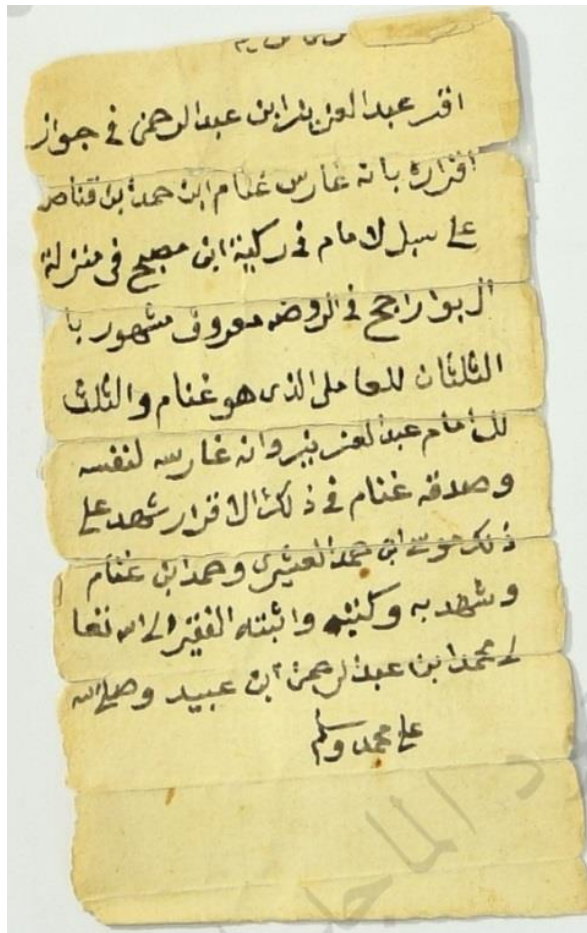 اقر عبدالعزيز ابن عبدالرحمن في جواز
اقراره بانه غارس غنام ابن حمد ابن قناص
على سبل لامام في ركية ابن مصبح في منزلة
ال بوراجح في الروضه معروف مشهور با
الثلثان للعامل الذي هو غنام والثلث
لل امام عبدالعزيز وانه غارسه لنفسه
وصدقه غنام في ذلك الاقرار شهد على
ذلك موسى ابن حمد العنيزي وحمد ابن غنام
وشهد به وكتبه واثبته الفقير الى الله تعا
لى محمد ابن عبدالرحمن ابن عبيد وصلى الله
على محمد وسلم